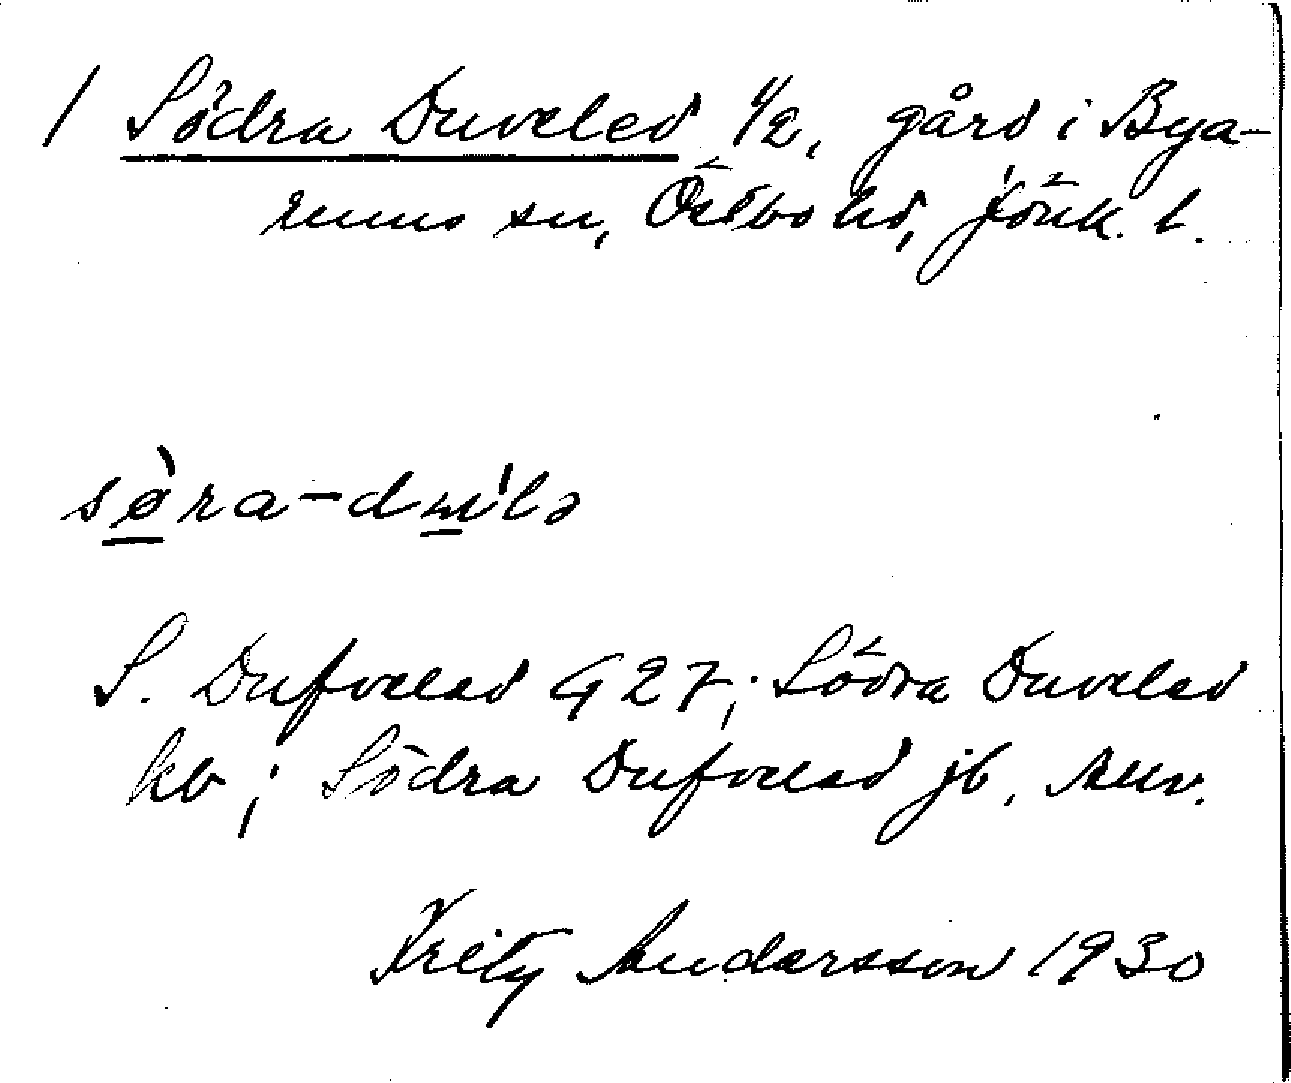 / Södra Duveled 1/2, gård i Bya-
rums sn, Östbo hd, Jönk. l.
sø̀ra-dúlə
S. Dufveled G 27; Södra Duveled
kb; Södra Dufveled jb, Mtr.
Fritz Andersson 1930